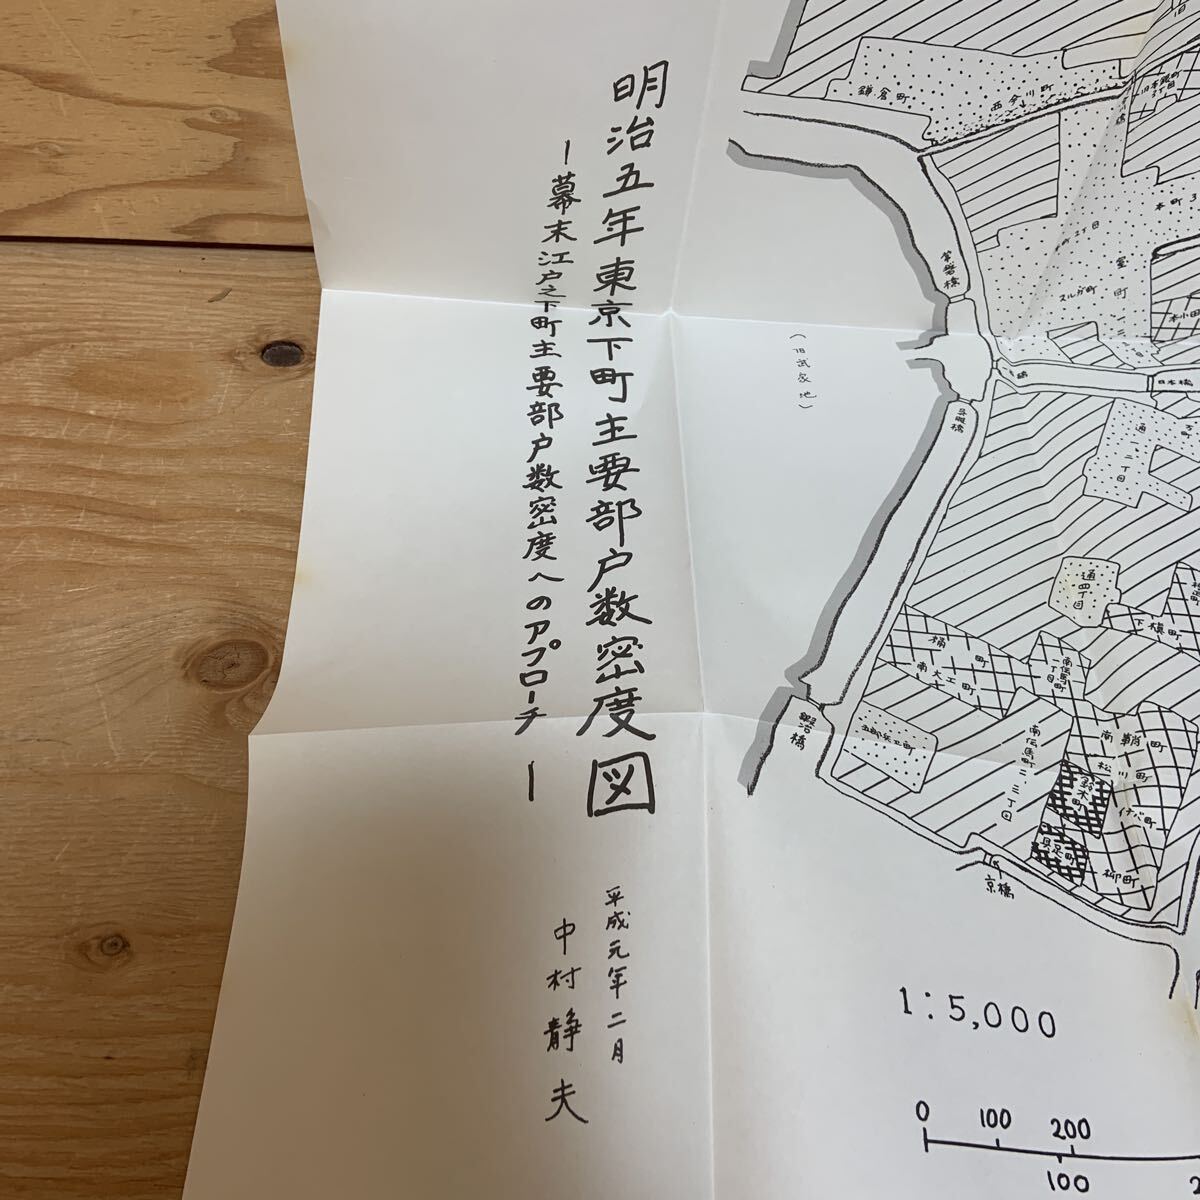 明治五年東京下町主要部户数密度図
ー幕末江户之下町主要部户数密度へのアプローチー
平成元年二月
中村静夫
鎌倉町
西今川町
本町3
2丁目
室町
スルガ町
本小田
常盤橋
(旧武家地)
日本橋
呉服橋
通一、二丁目
通四丁目
下槇町
桶町
南大工町
南伝馬町一丁目
南伝馬町二、三丁目
五郎兵エ町
鍛冶橋
南鞘町
松川町
鈴木町
イナバ町
具足町
柳町
京橋
1:5,000
0 100 200
100